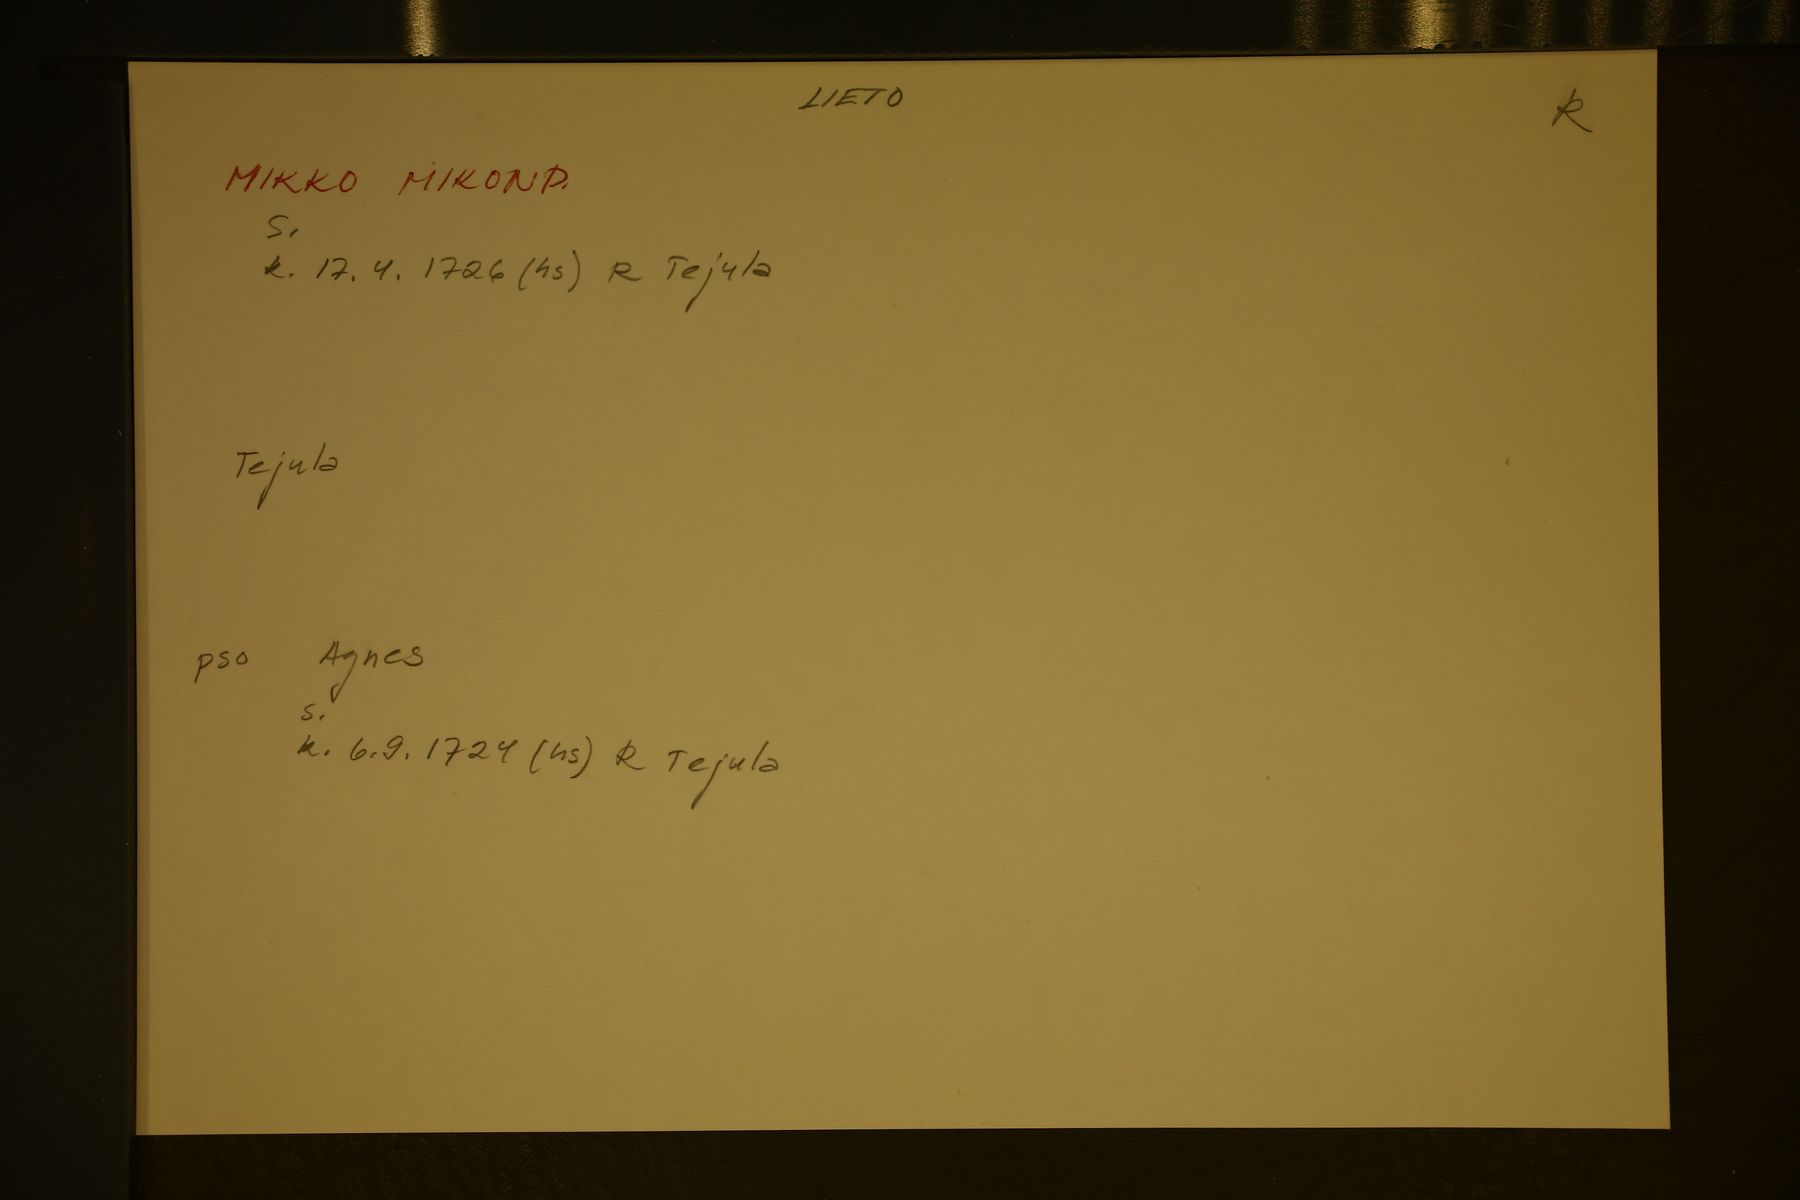 LIETO
R
MIKKO MIKONP.
S.
k. 17.4. 1726 (hs) R Tejula
Tejula
pso Agnes
s.
k. 6.9. 1724 (hs) R Tejula